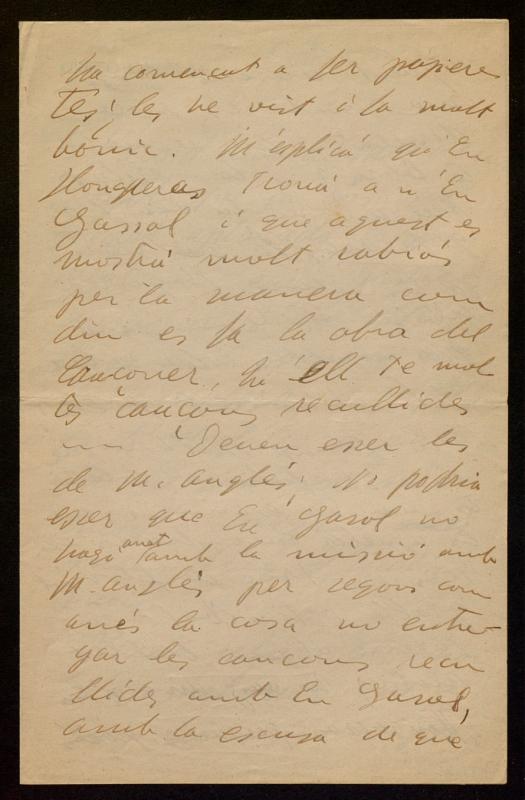 ha comensat a fer papiere
tes; les he vist i la molt
bonic. M'esplicá qu'En
Llongueras trová a n'En
Gassol i que aquest es
mostrá molt rabiós
per la manera com
diu es fa la obra del
Cançoner, qu' ell te mol
tes cançons recullides
—— Deuen esser les
de M. Anglés; No podria
esser que En Gasol no
hagi anat amb la missió amb
M. Anglés per segons com
anés la cosa no entre-
gar les cançons recu
llides amb En Gasol,
amb la escusa de qué